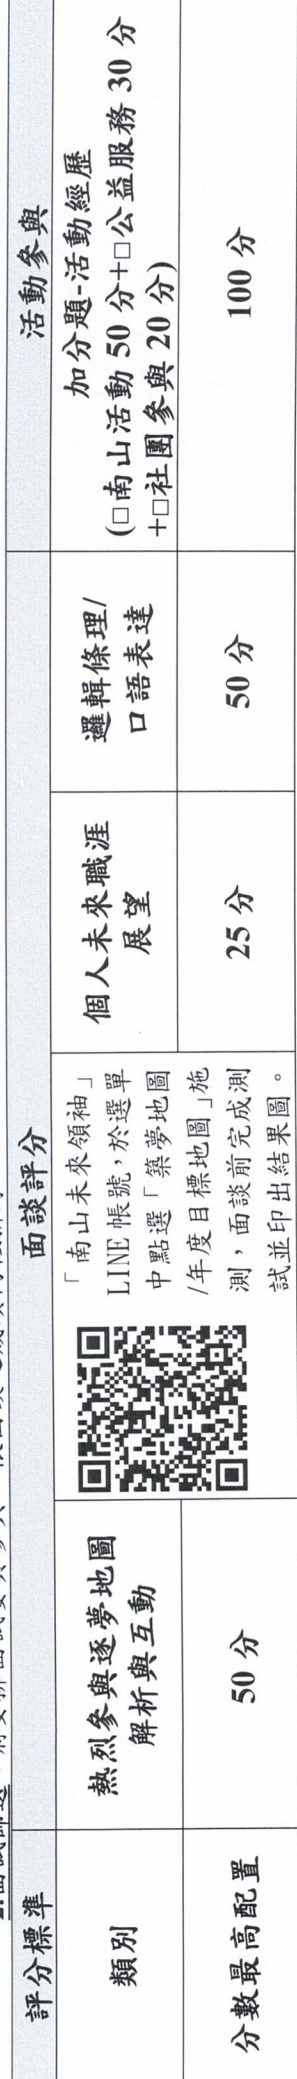 評分標準
面談評分
活動參與
類別
熱烈參與逐夢地圖
解析與互動
「南山未來領袖」
LINE 帳號，於選單
中點選「築夢地圖
/年度目標地圖」施
測，面談前完成測
試並印出結果圖。
個人未來職涯
展望
邏輯條理/
口語表達
加分題-活動經歷
(□南山活動 50 分+□公益服務 30 分
+□社團參與 20 分)
分數最高配置
50 分
25 分
50 分
100 分